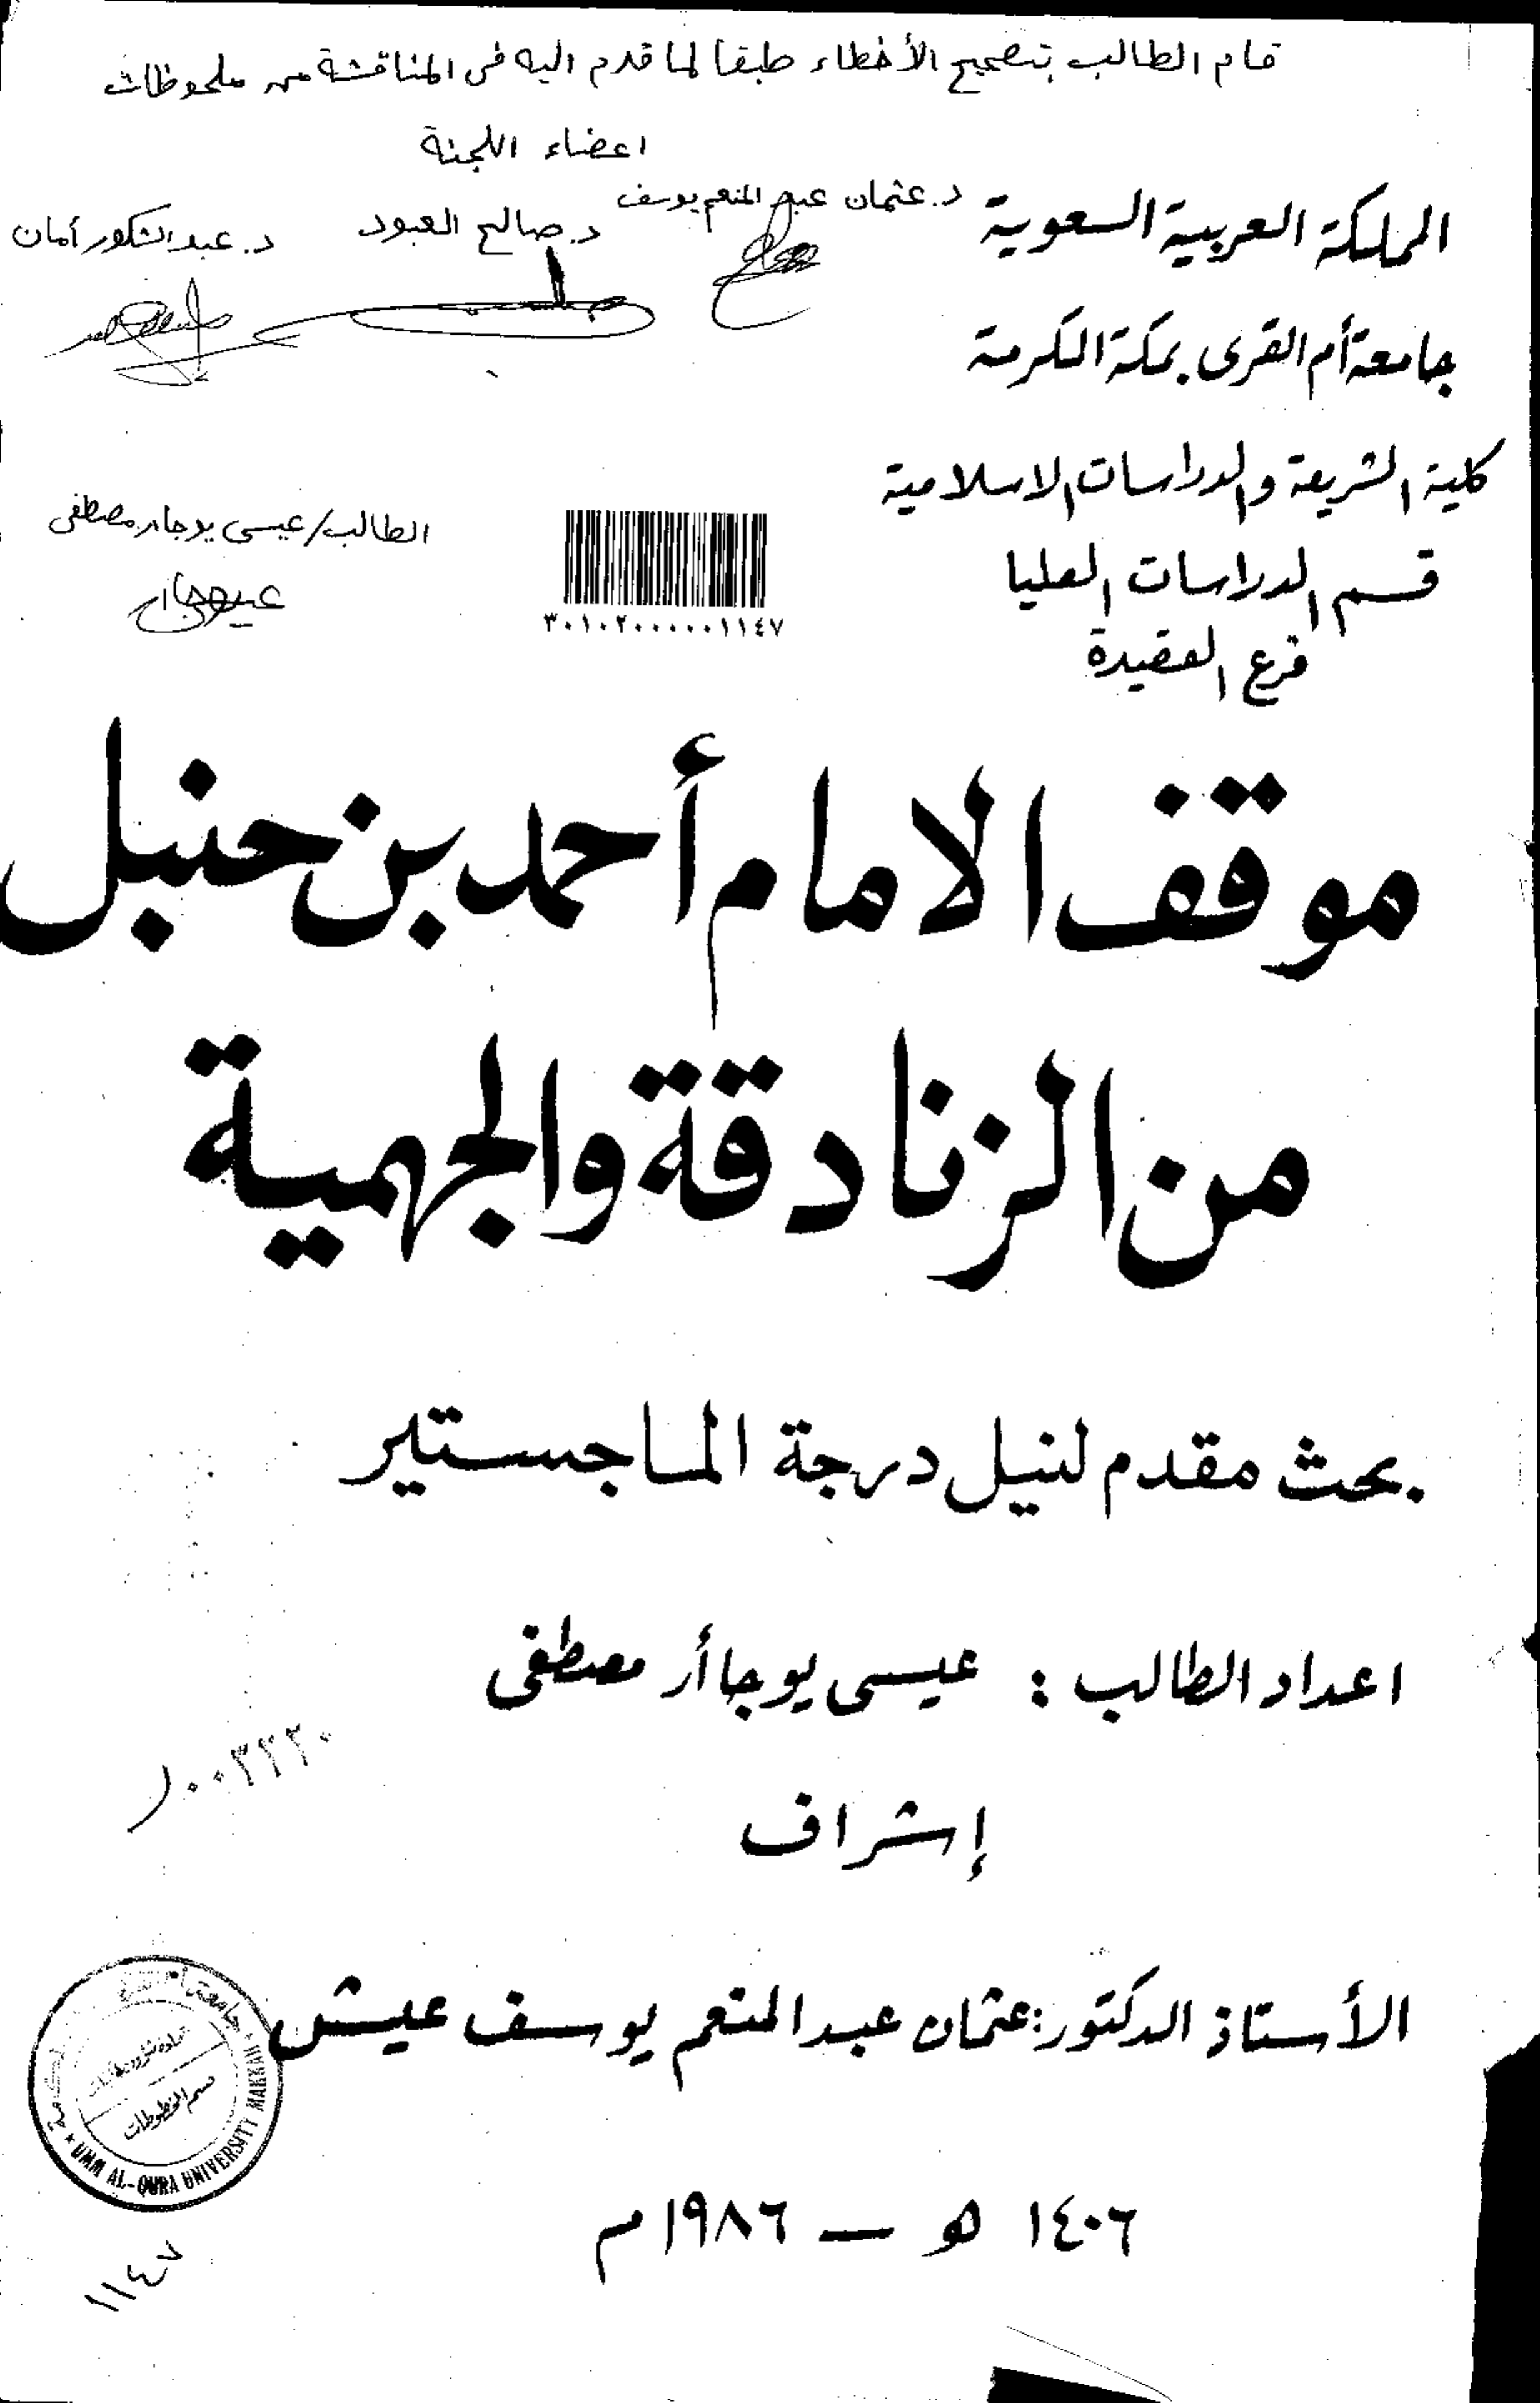 قام الطالب بتصحيح الأخطاء طبقا لما قدم اليه فى المناقشة من ملحوظات
اعضاء اللجنة
د. عثمان عبد المنعم يوسف
د. صالح العبود
د. عبد الشكور أمان
المملكة العربية السعودية
جامعة أم القرى بمكة المكرمة
كلية الشريعة والدراسات الاسلامية
قسم الدراسات العليا
فرع العقيدة
الطالب/عيسى يوجار مصطفى
٣٠١٠٢٠٠٠٠٠٠١١٤٧
موقف الامام أحمد بن حنبل
من الزنادقة والجهمية
بحث مقدم لنيل درجة الماجستير
اعداد الطالب : عيسى يوجاأر مصطفى
إشراف
الأستاذ الدكتور: عثمان عبد المنعم يوسف عيش
جامعة أم القرى
قسم المخطوطات
UMM AL-QURA UNIVERSITY MAKKAH
١٤٠٦ هـ — ١٩٨٦ م
١١٤٧